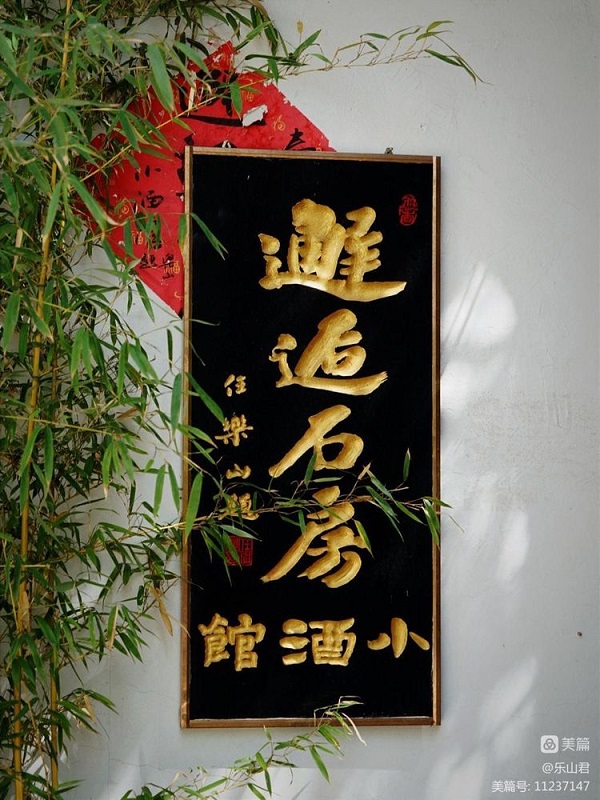 邂逅石房
小酒館
任樂山題
小酒
美篇
@乐山君
美篇号: 11237147